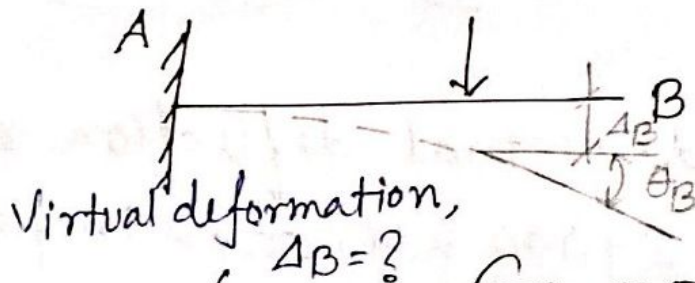 A
B
ΔB
θB
Virtual deformation,
ΔB = ?